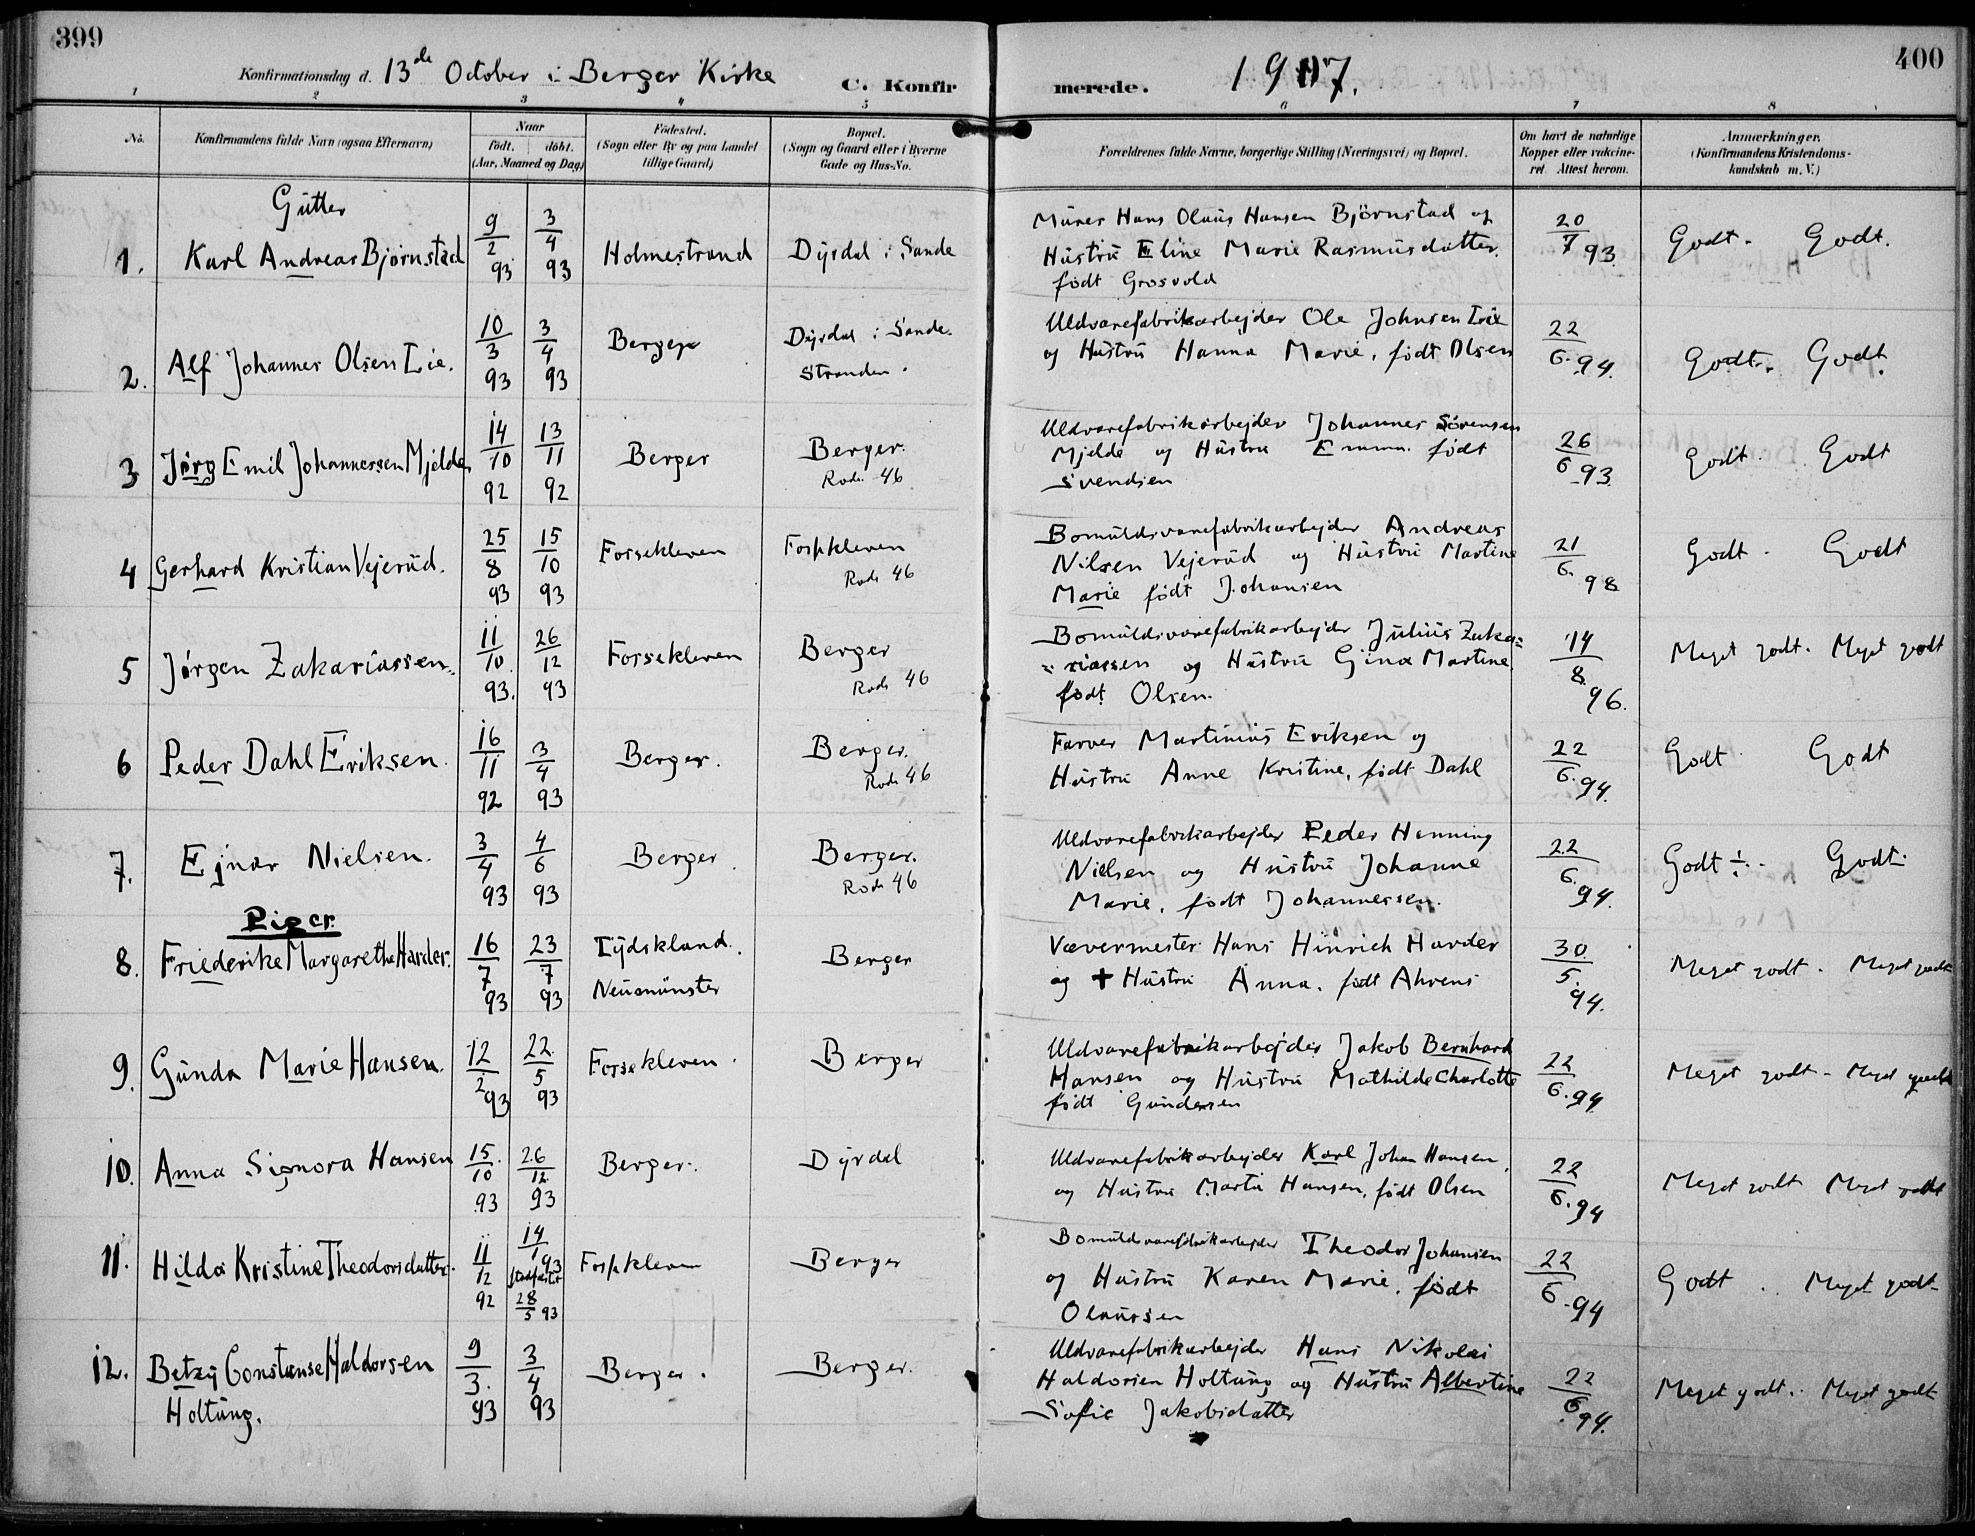 399
400
Konfirmationsdag d. 13de October i Berger Kirke
C. Konfirmerede. 1907.
1 2 3 4 5 6 7 8
No.
Konfirmandens fulde Navn (ogsaa Efternavn)
Naar
født. døbt.
(Aar, Maaned og Dag)
Fødested.
(Sogn eller By og paa Landet
tillige Gaard)
Bopæl.
(Sogn og Gaard eller i Byerne
Gade og Hus-No.
Forældrenes fulde Navne, borgerlige Stilling (Næringsvei) og Bopæl.
Om havt de naturlige
Kopper eller vakcine-
ret Attest herom.
Anmærkninger.
(Konfirmandens Kristendoms-
kundskab m. V.)
Gutter
1. Karl Andreas Bjørnstad 9/2 93 3/4 93 Holmestrand Dyrdal i Sande
Murer Hans Olaus Hansen Bjørnstad og
Hustru Eline Marie Rasmusdatter.
født Grosvold
20/7 93. Godt. Godt.
2. Alf Johannes Olsen Lie. 10/3 93 3/4 93 Berger Dyrdal i Sande.
Stranden.
Uldvarefabrikarbejder Ole Johnsen Lie
og Hustru Hanna Marie, født Olsen
22/6.94. Godt. Godt.
3 Jørg Emil Johannessen Mjelde 14/10 92 13/11 92 Berger Berger.
Rode 46
Uldvarefabrikarbejder Johannes Sörensen
Mjelde og Hustru Emma. født
Svendsen
26/6 93. Godt. Godt
4 Gerhard Kristian Vejerud. 25/8 93 15/10 93 Fossekleven Fossekleven
Rode 46
Bomuldsvarefabrikarbejder Andreas
Nilsen Vejerud og Hustru Martine
Marie født Johansen
21/6. 98 Godt. Godt
5 Jørgen Zakariassen. 11/10 93. 26/12 93 Fossekleven Berger
Rode 46
Bomuldsvarefabrikarbejder Julius Zaka=
=riassen og Hustru Gina Martine
født Olsen.
14/8. 96. Meget godt. Meget godt
6 Peder Dahl Eriksen. 16/11 92 3/4 93 Berger. Berger.
Rode 46
Farver Martinius Eriksen og
Hustru Anne Kristine, født Dahl
22/6.94. Godt Godt
7. Ejnar Nielsen. 3/4 93 4/6 93 Berger. Berger.
Rode 46
Uldvarefabrikarbejder Peder Henning
Nielsen og Hustru Johanne
Marie, født Johannessen.
22/6.94. Godt ÷. Godt.
Piger.
8. Friederike Margarethe Harder. 16/7 93 23/7 93 Tydskland. Berger
Neumünster
Vævermester Hans Hinrich Harder
og + Hustru Anna. født Ahrens
30/5. 94. Meget godt. Meget godt
9. Gunda Marie Hansen. 12/2 93 22/5 93 Fossekleven. Berger
Uldvarefabrikarbejder Jakob Bernhard
Hansen og Hustru Mathilde Charlotte
født Gundersen
22/6.94 Meget godt - Meget godt
10. Anna Signora Hansen 15/10 93 26/12 93 Berger. Dyrdal
Uldvarefabrikarbejder Karl Johan Hansen,
og Hustru Marta Hansen, født Olsen
22/6.94 Meget godt Meget godt
11. Hilda Kristine Theodorsdatter. 11/12 92 14/1 93 stadfæstet 28/5 93 Fossekleven Berger
Bomuldsvarefabrikarbejder Theodor Johansen
og Hustru Karen Marie. født
Olaussen
22/6.94 Godt. Meget godt
12. Betzy Constanse Haldorsen 9/3. 93 3/4 93 Berger. Berger.
Holtung.
Uldvarefabrikarbejder Hans Nikolai
Haldorsen Holtung og Hustru Albertine
Sofie Jakobsdatter
22/6 94. Meget godt. Meget godt